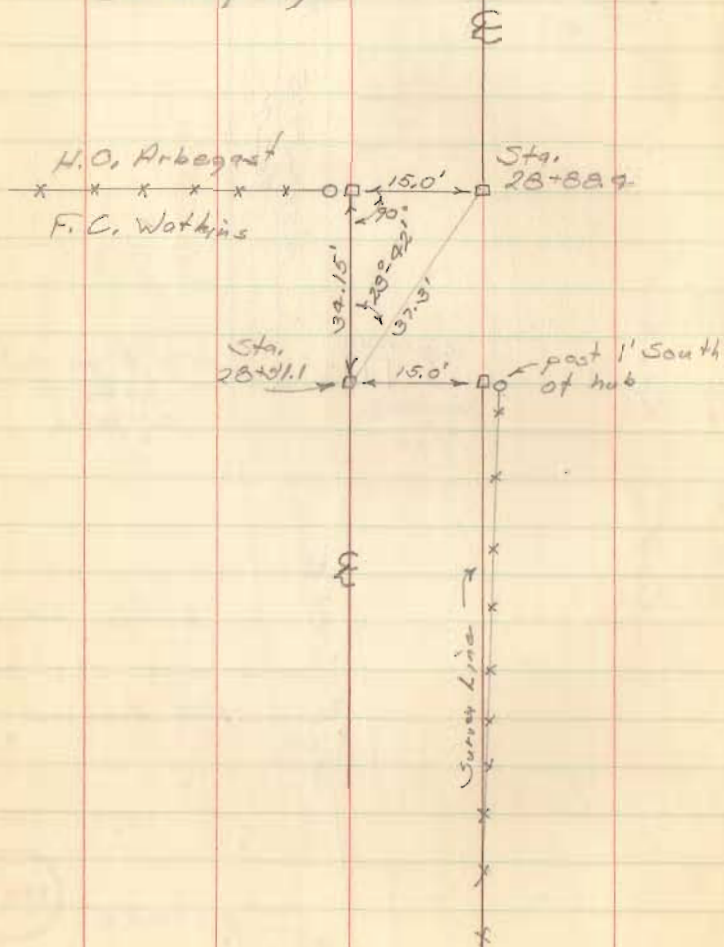 ℄
H.O. Arbegast
F. C. Watkins
15.0'
Sta.
28+88.4
90°
34.15'
23°-42'
37.3'
Sta.
28+51.1
15.0'
post 1' South
of hub
℄
Survey Line